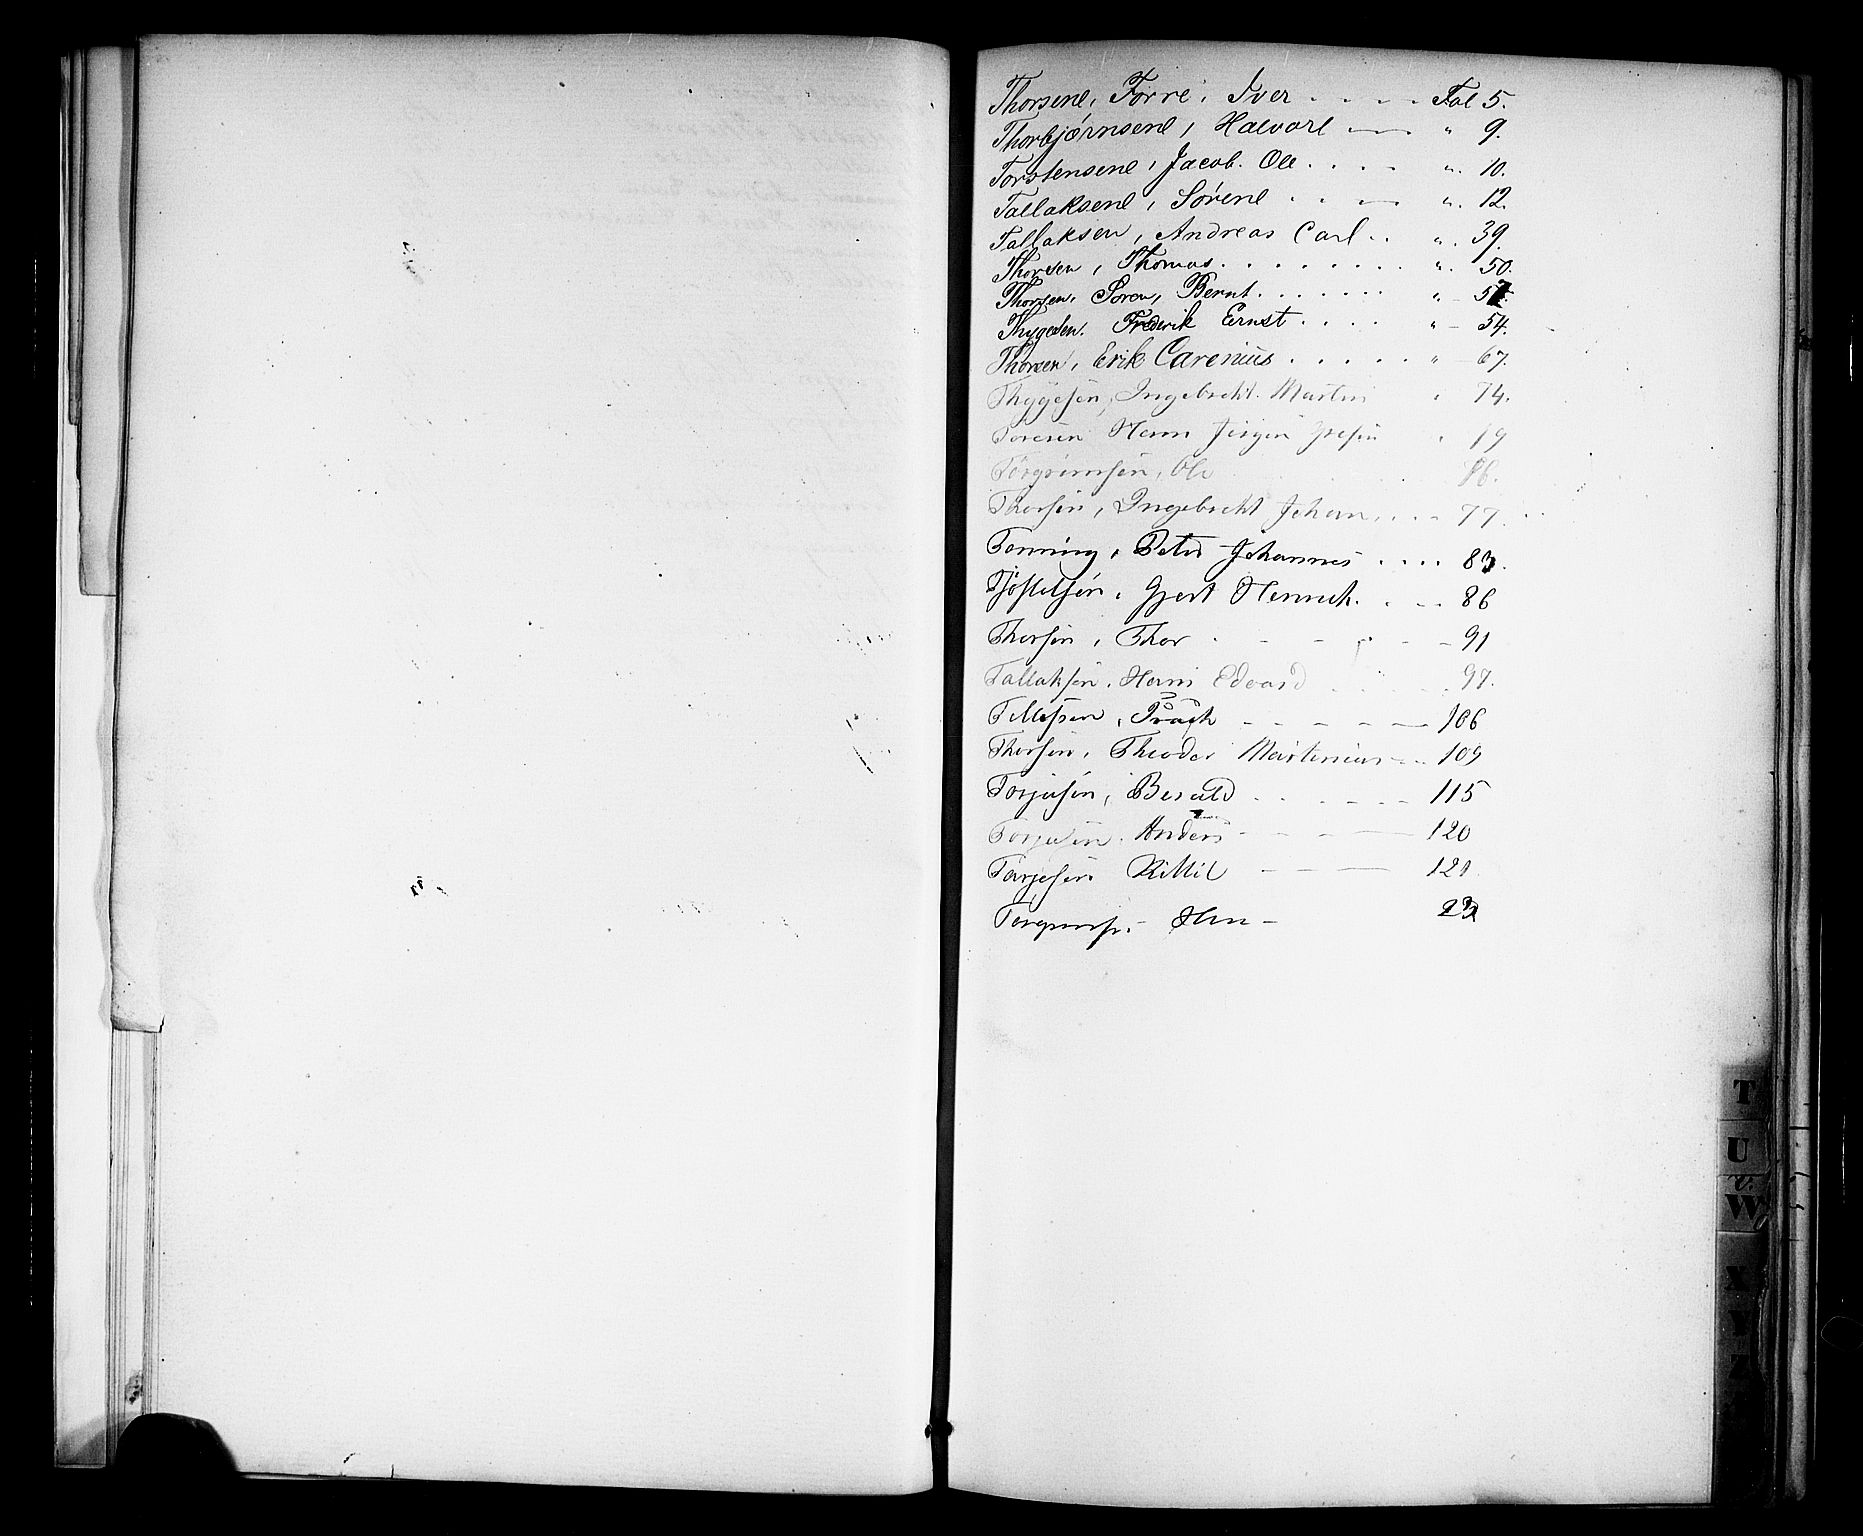 Thorsen, Torre, Iver . . . . Fol 5.
Thorbjørnsen, Halvor — " 9.
Torstensen, Jacob. Ole . . . . " 10.
Tallaksen, Søren . . . — " 12.
Tallaksen, Andreas Carl . . " 39.
Thorsen, Thomas . . . . . . . . . " 50.
Thorsen, Soren, Bernt . . . . . . " 57.
Thygesen. Frederik Ernst . . . . " — 54.
Thorsen, Erik Carenius . . . . . " — 67.
Thygesen, Ingebrecht Martin " 74.
Hans Jørgen " 79
Torgrimsen, Ole 86.
Thorsen, Ingebrecht Johan . . . . 77.
Tonning, Peter Johannes . . . . 83.
Tjøstelsen, Gjert Henrich . . . . 86
Thorsen, Thor . - - - - 91
Tallaksen, Hans Edvard . . . . 97.
Tellefsen, - - - - — 106
Thorsen, Theodor Martinius - - 109
Torjusen, Beruld . . - - - - 115
Torjusen. Anders - - - — 120
Tarjesen Kittil - - — 121
23
T
U
V.
W
X
Y
Z